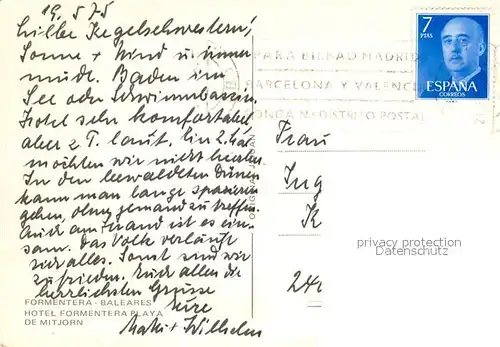 19. 5 75
Liebe Kegelschwestern!
Sonne + Wind u immer
müde. Baden im
See oder Schwimmbassin.
Hotel sehr komfortabel
aber z T. laut. Ein 2. Mal
möchten wir nicht hierher.
In den bewaldeten Dünen
kann man lange spazieren
gehen, ohne jemand zu treffen.
Auch am Strand ist es ein-
sam. Das Volk verläuft
sich alles. Sonst sind wir
zufrieden. Euch allen die
herzlichsten Grüsse
Eure
+ Wilhelm
FORMENTERA - BALEARES
HOTEL FORMENTERA PLAYA
DE MITJORN
7
PTAS
ESPAÑA
CORREOS
PARA BILBAO MADRID
BARCELONA Y VALENCIA
PONGA Nº DISTRITO POSTAL
Frau
Ing
K
240
privacy protection
Datenschutz